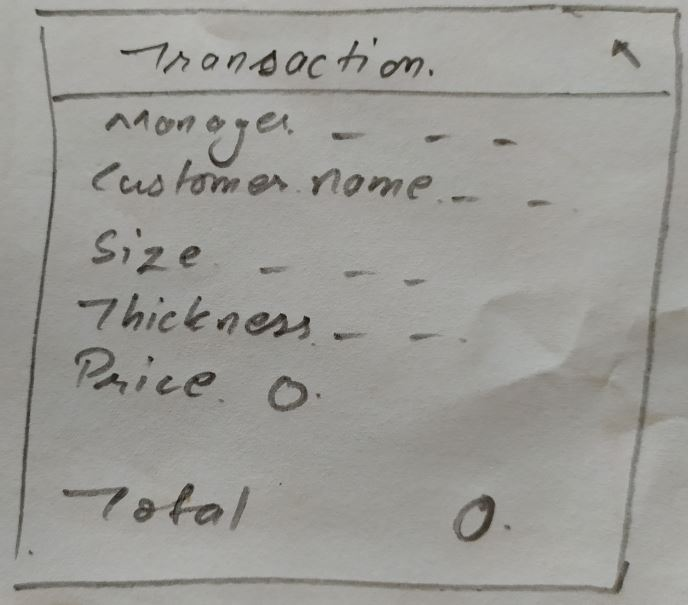 Transaction.
Manager. - - -
Customer name. - -
Size. - - -
Thickness. - -.
Price. 0.
Total 0.